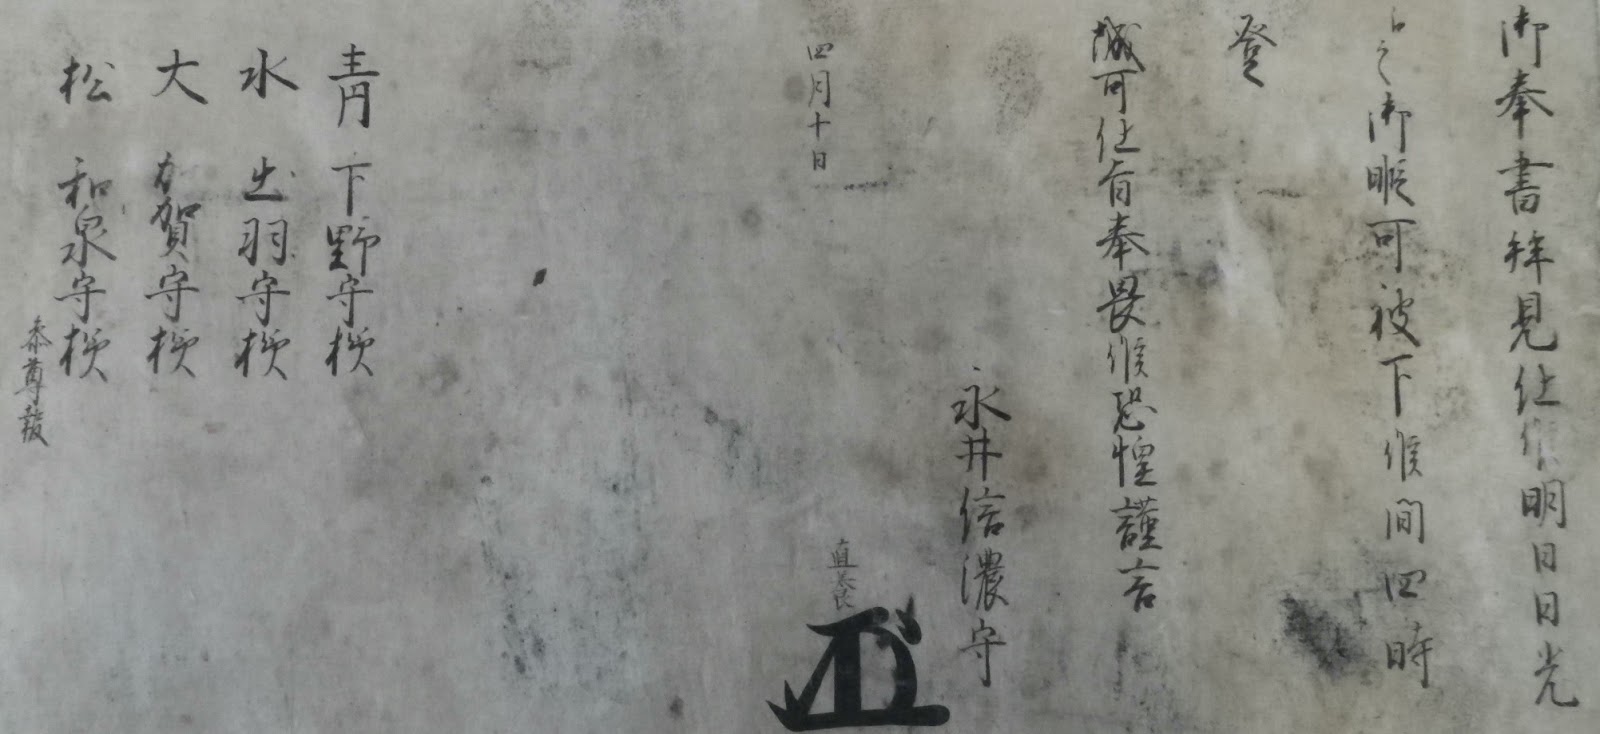 御奉書拝見仕候明日日光
より之御暇可被下候間四時
登
城可仕旨奉畏候恐惶謹言
永井信濃守
四月十日
直養
青下野守様
水出羽守様
大加賀守様
松和泉守様
参尊報